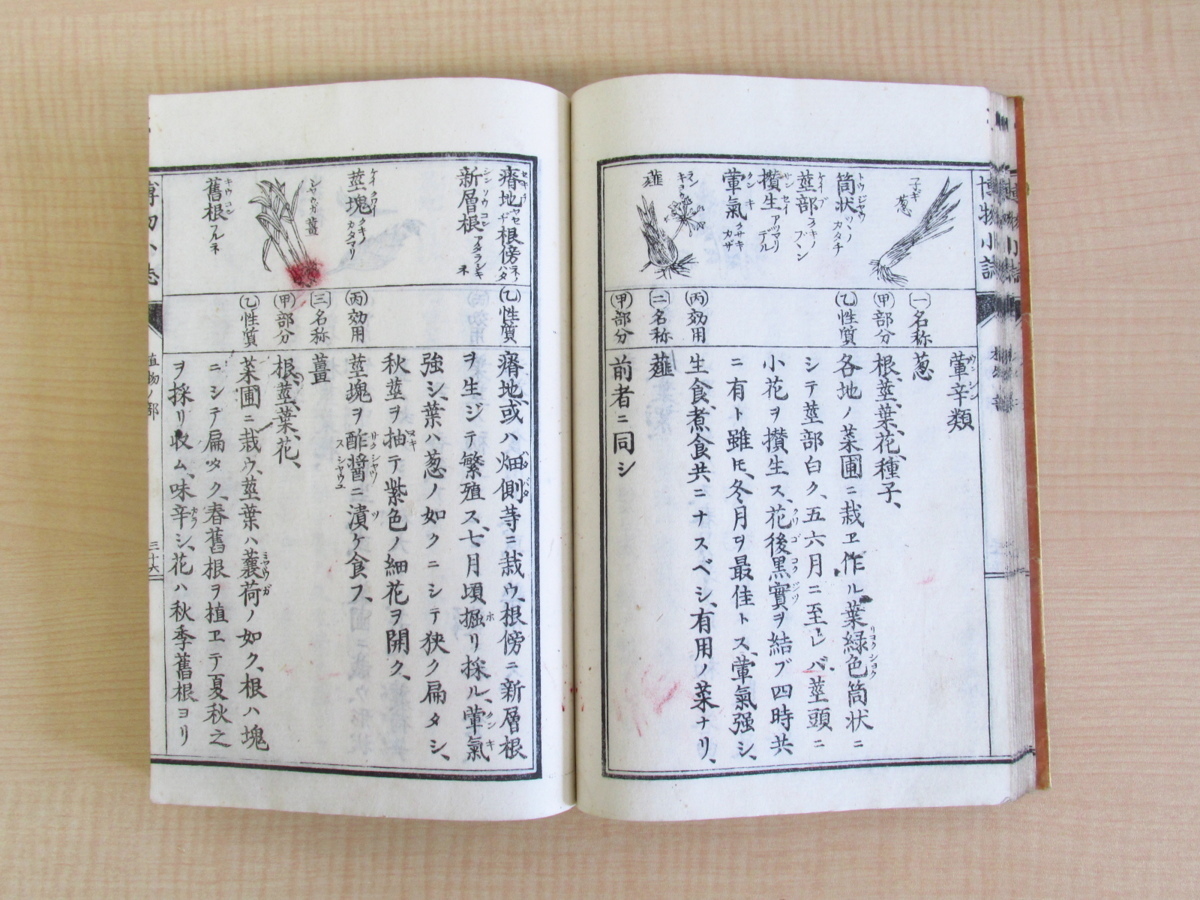 博物小誌
葷辛類
㊀名称
葱
㊙部分
根、莖、葉、花、種子、
㋚性質
各地ノ菜圃ニ栽ヱ作ル葉綠色筒状ニ
シテ莖部白ク、五六月ニ至レバ莖頭ニ
小花ヲ攢生ス、花後黒實ヲ結ブ四時共
ニ有ト雖ヒ、冬月ヲ最佳トス、葷氣强シ、
(丙)効用
生食、煮食共ニナスベシ、有用ノ菜ナリ、
(二)名称
薤
(甲)部分
前者ニ同シ
葱
筒状 ツヽノカタチ
莖部 クキノブン
攢生 アツマリデル
葷氣 クサキカザ
薤
(乙)性質
瘠地或ハ畑側等ニ栽ウ、根傍ニ新層根
ヲ生ジテ繁殖ス、七月頃掘リ採ル、葷氣
強シ、葉ハ葱ノ如クニシテ狹ク扁タシ、
秋莖ヲ抽テ紫色ノ細花ヲ開ク、
(丙)効用
莖塊ヲ酢醤ニ漬ケ食フ、
(三)名称
薑
(甲)部分
根、莖、葉、花、
(乙)性質
菜圃ニ栽ウ、莖葉ハ蘘荷ノ如ク、根ハ塊
ニシテ扁タク、春舊根ヲ植ヱテ夏秋之
ヲ採リ收ム、味辛シ、花ハ秋季舊根ヨリ
瘠地
根傍
新層根
莖塊 クキノカタマリ
薑
舊根 フルネ
植物ノ部
三十六